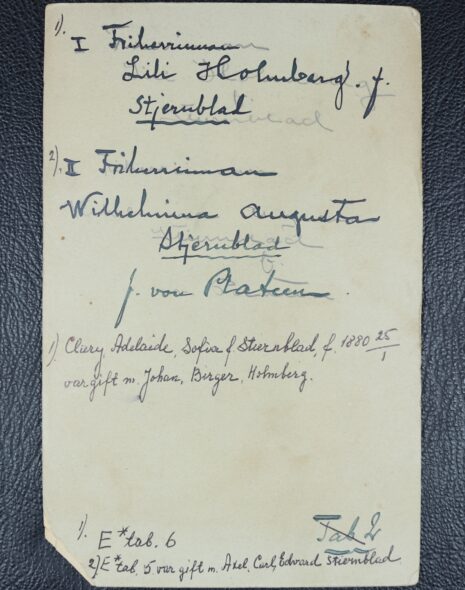 1). I Friherrinnan
Lili Holmberg. f.
Stjernblad
2). II Friherrinnan
Wilhelmina Augusta
Stjernblad
f. von Platen.
1) Clary, Adelaide, Sofia f. Stiernblad, f. 1880 25/1
var gift m. Johan, Birger, Holmberg.
Tab 2
1). E* tab. 6
2) E* tab. 5 var gift m. Axel. Carl, Edvard Stiernblad